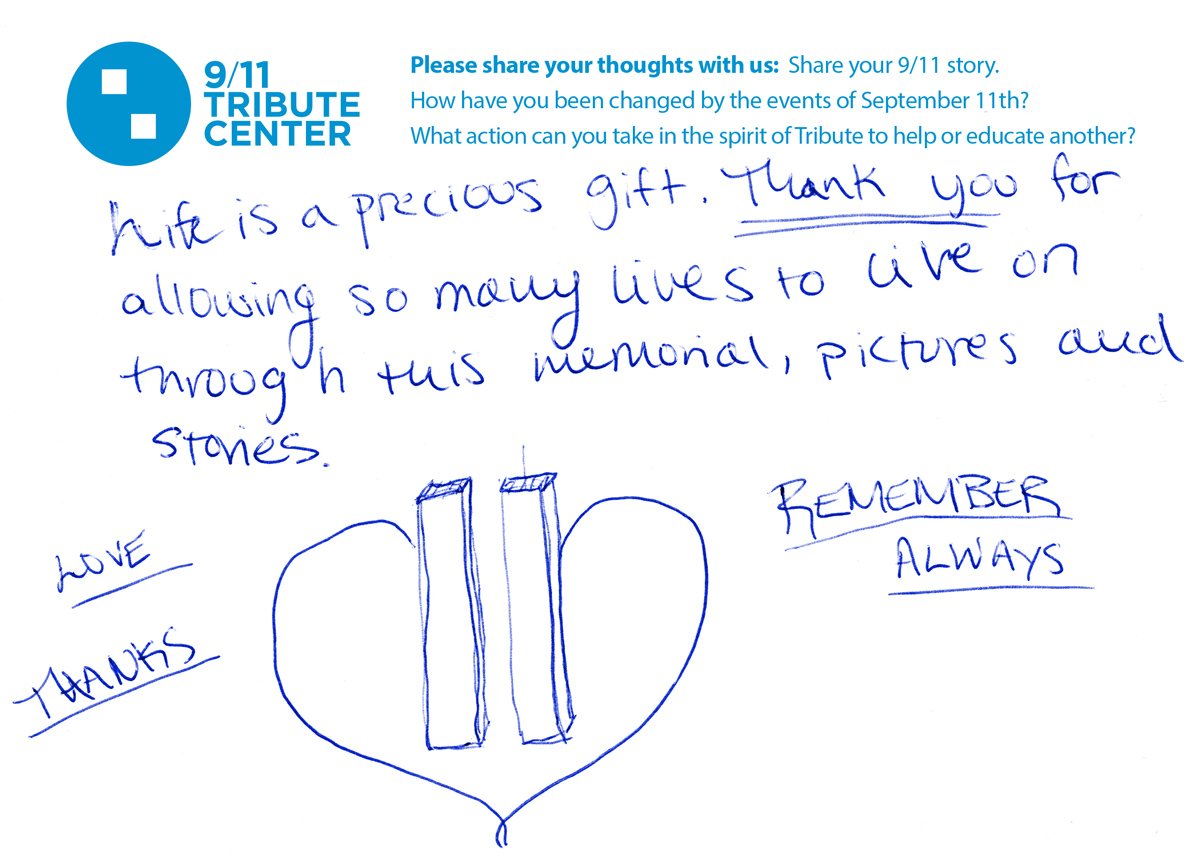 9/11
TRIBUTE
CENTER
Please share your thoughts with us: Share your 9/11 story.
How have you been changed by the events of September 11th?
What action can you take in the spirit of Tribute to help or educate another?
Life is a precious gift. Thank you for
allowing so many lives to live on
through this memorial, pictures and
stories.
LOVE
THANKS
REMEMBER
ALWAYS